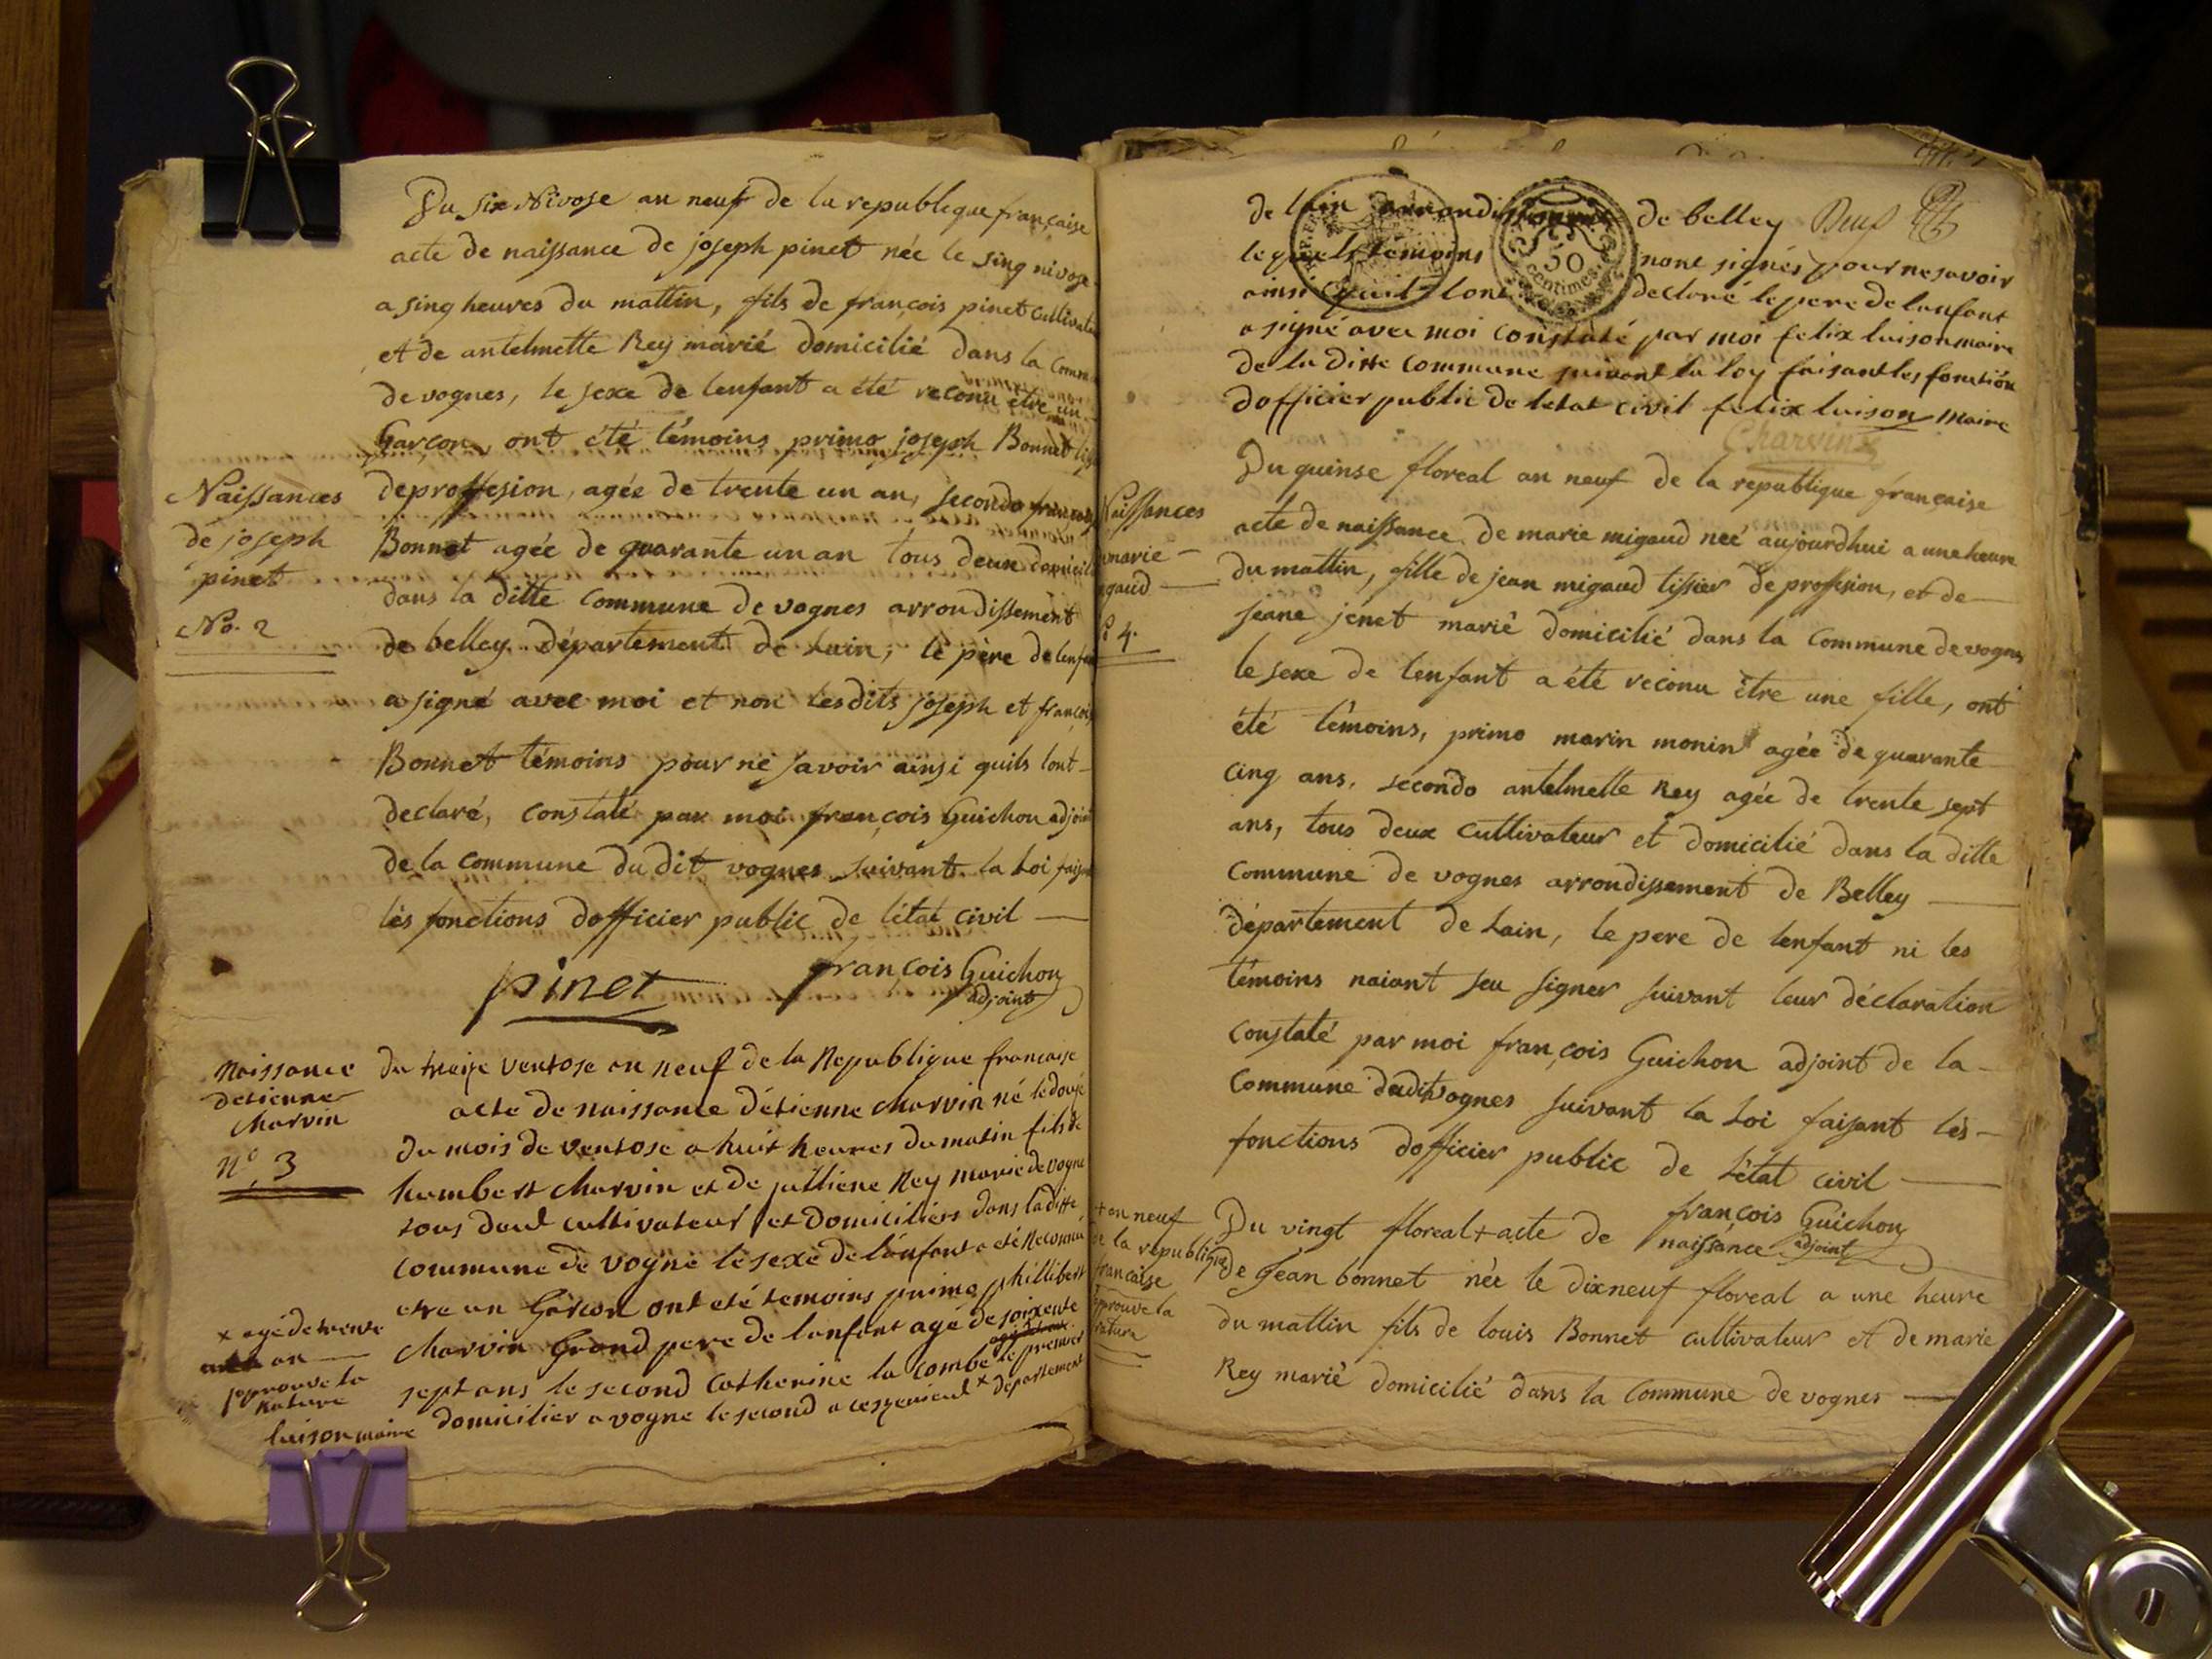 Du six Nivose an neuf de la republique française
acte de naissance de joseph pinet née le sing nivose
a sing heures du mattin, fils de françois pinet cultivat
et de antelmette Rey marié domicilié dans la Comm
de vognes, le sexe de lenfant a été reconu etre un
Garçon, ont été témoins primo joseph Bonnet
deproffesion, agée de trente un an, secondo françois
Bonnet agée de quarante un an tous deux domicil
dans la ditte Commune de vognes arrondissement
de belley département de Lain, le père de lenfan
a signé avec moi et non lesdits joseph et françois
Bonnet témoins pour ne savoir ainsi quils lont
declaré, constaté par moi françois Guichon adjoint
de la Commune du dit vognes suivant la Loi faisant
les fonctions dofficier public de létat civil
pinet françois Guichon
adjoint
Naissances
de joseph
pinet
No. 2
du treize ventose an neuf de la Republique francaise
acte de naissance détienne charvin né le douze
du mois de ventose a huit heures du matin fils de
humbert charvin et de julliene Rey marié de vogne
tous deux cultivateur et domiciliers dans la ditte
commune de vogne le sexe de lenfant a été Reconnu
etre un Garcon ont eté temoins primo phillibert
charvin Grand pere de lenfant agé de soixente
sept ans le second Catherine la combe le premier
domicilier a vogne le second a cesserieul x departement
naissance
detienne
charvin
n° 3
x agé de trente
an
japrouve la
Rature
luison maire
de lain arrondissement de belley Neuf
lequels témoins nont signés pour ne savoir
ainsi quils lont declaré le pere de lanfant
a signé avec moi constaté par moi felix luison maire
de la ditte commune suivant la loy faisant les fonction
dofficier public de letat civil felix luison maire
50
centimes
Charvin
Du quinse floreal an neuf de la republique française
acte de naissance de marie migaud neé aujourdhui a une heure
du mattin, fille de jean migaud tissier de proffision, et de
jeane jenet marié domicilié dans la Commune de vognes
le sexe de lenfant a été reconu être une fille, ont
été témoins, primo marin monin agée de quarante
cinq ans, secondo antelmette Rey agée de trente sept
ans, tous deux cultivateur et domicilié dans la ditte
Commune de vognes arrondissement de Belley
département de Lain, le pere de lenfant ni les
témoins naiant seu signer suivant leur déclaration
constaté par moi françois Guichon adjoint de la
Commune dudit vognes suivant la Loi faisant les
fonctions dofficier public de Létat civil
françois Guichon
adjoint
Naissances
marie
gaud
4.
Du vingt floreal + acte de naissance
de jean bonnet née le dixneuf floreal a une heure
du mattin fils de louis Bonnet cultivateur et de marie
Rey marié domicilié dans la Commune de vognes
+ an neuf
de la republique
française
aprouve la
rature